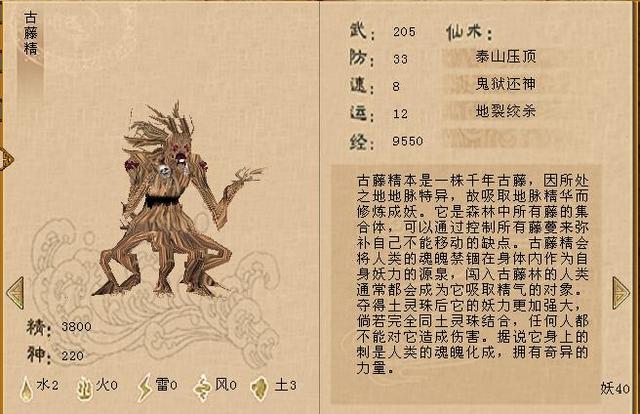 古藤精
精：3800
神：220
水2 火0 雷0 风0 土3
武：205
防：33
速：8
运：12
经：9550
仙术：
泰山压顶
鬼狱还神
地裂绞杀
古藤精本是一株千年古藤，因所处
之地地脉特异，故吸取地脉精华而
修炼成妖。它是森林中所有藤的集
合体，可以通过控制所有藤蔓来弥
补自己不能移动的缺点。古藤精会
将人类的魂魄禁锢在身体内作为自
身妖力的源泉，闯入古藤林的人类
通常都会成为它吸取精气的对象。
夺得土灵珠后它的妖力更加强大，
倘若完全同土灵珠结合，任何人都
不能对它造成伤害。据说它身上的
刺是人类的魂魄化成，拥有奇异的
力量。
妖40